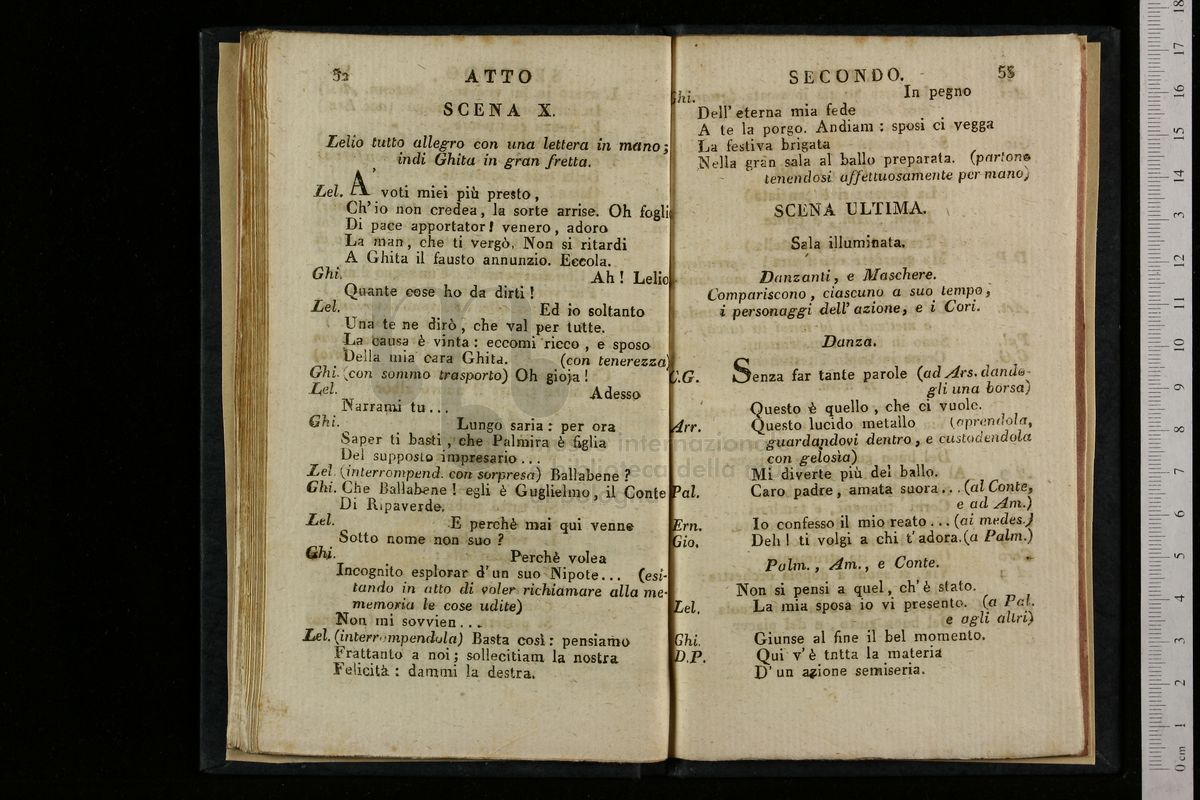 52
ATTO
SCENA X.
Lelio tutto allegro con una lettera in mano;
indi Ghita in gran fretta.
Lel. A' voti miei più presto,
Ch' io non credea, la sorte arrise. Oh fogli
Di pace apportator! venero, adoro
La man, che ti vergò. Non si ritardi
A Ghita il fausto annunzio. Eccola.
Ghi. Ah! Lelio
Quante cose ho da dirti!
Lel. Ed io soltanto
Una te ne dirò, che val per tutte.
La causa è vinta: eccomi ricco, e sposo
Della mia cara Ghita. (con tenerezza)
Ghi. (con sommo trasporto) Oh gioja!
Lel. Adesso
Narrami tu...
Ghi. Lungo saria: per ora
Saper ti basti, che Palmira è figlia
Del supposto impresario...
Lel. (interrompend. con sorpresa) Ballabene?
Ghi. Che Ballabene! egli è Guglielmo, il Conte
Di Ripaverde.
Lel. E perchè mai qui venne
Sotto nome non suo?
Ghi. Perchè volea
Incognito esplorar d'un suo Nipote... (esi-
tando in atto di voler richiamare alla me-
memoria le cose udite)
Non mi sovvien...
Lel. (interrompendola) Basta così: pensiamo
Frattanto a noi; sollecitiam la nostra
Felicità: dammi la destra.
SECONDO.
53
Ghi. In pegno
Dell' eterna mia fede
A te la porgo. Andiam: sposi ci vegga
La festiva brigata
Nella gran sala al ballo preparata. (partono
tenendosi affettuosamente per mano)
SCENA ULTIMA.
Sala illuminata.
Danzanti, e Maschere.
Compariscono, ciascuno a suo tempo,
i personaggi dell' azione, e i Cori.
Danza.
C.G. Senza far tante parole (ad Ars. dando-
gli una borsa)
Questo è quello, che ci vuole.
Arr. Questo lucido metallo (aprendola,
guardandovi dentro, e custodendola
con gelosia)
Mi diverte più del ballo.
Pal. Caro padre, amata suora... (al Conte,
e ad Am.)
Ern. Io confesso il mio reato... (ai medes.)
Gio. Deh! ti volgi a chi t'adora. (a Palm.)
Palm., Am., e Conte.
Non si pensi a quel, ch' è stato.
Lel. La mia sposa io vi presento. (a Pal.
e agli altri)
Ghi. Giunse al fine il bel momento.
D.P. Qui v' è tntta la materia
D' un azione semiseria.